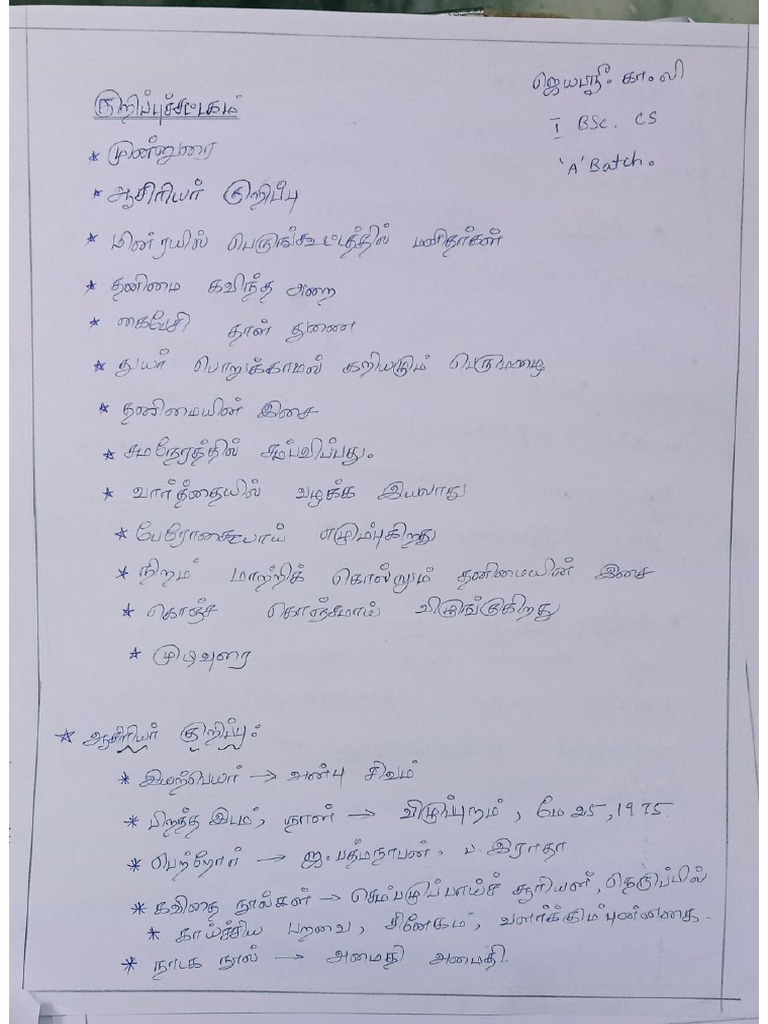 ஜெயஸ்ரீ. கா. லி
I BSc. CS
'A' Batch.
குறிப்புச்சட்டகம்
* முன்னுரை
* ஆசிரியர் குறிப்பு
* மின்ரயில் பெருங்கூட்டத்தில் மனிதர்கள்
* தனிமை கவிந்த அறை
* கைபேசி தான் துணை
* துயர் பொறுக்காமல் கதறியழும் பெருமழை
* தனிமையின் இசை
* சமநேரத்தில் சம்பவிப்பது.
* வார்த்தையில் வழக்க இயலாது
* பேரோசையாய் எழும்புகிறது
* நிறம் மாற்றிக் கொல்லும் தனிமையின் இசை
* கொஞ்ச கொஞ்சமாய் விழுங்குகிறது
* முடிவுரை
* ஆசிரியர் குறிப்பு:
* இயற்பெயர் → அன்பு சிவம்
* பிறந்த இடம், நாள் → விழுப்புறம், மே 25, 1975.
* பெற்றோர் → ஜ. பத்மநாபன், ப. இராதா
* கவிதை நூல்கள் → செம்பழுப்பாய்ச் சூரியன், நெருப்பில்
* காய்ச்சிய பறவை, சினேகம், வளர்க்கும் புன்னகை.
* நாடக நூல் → அமைதி அமைதி.